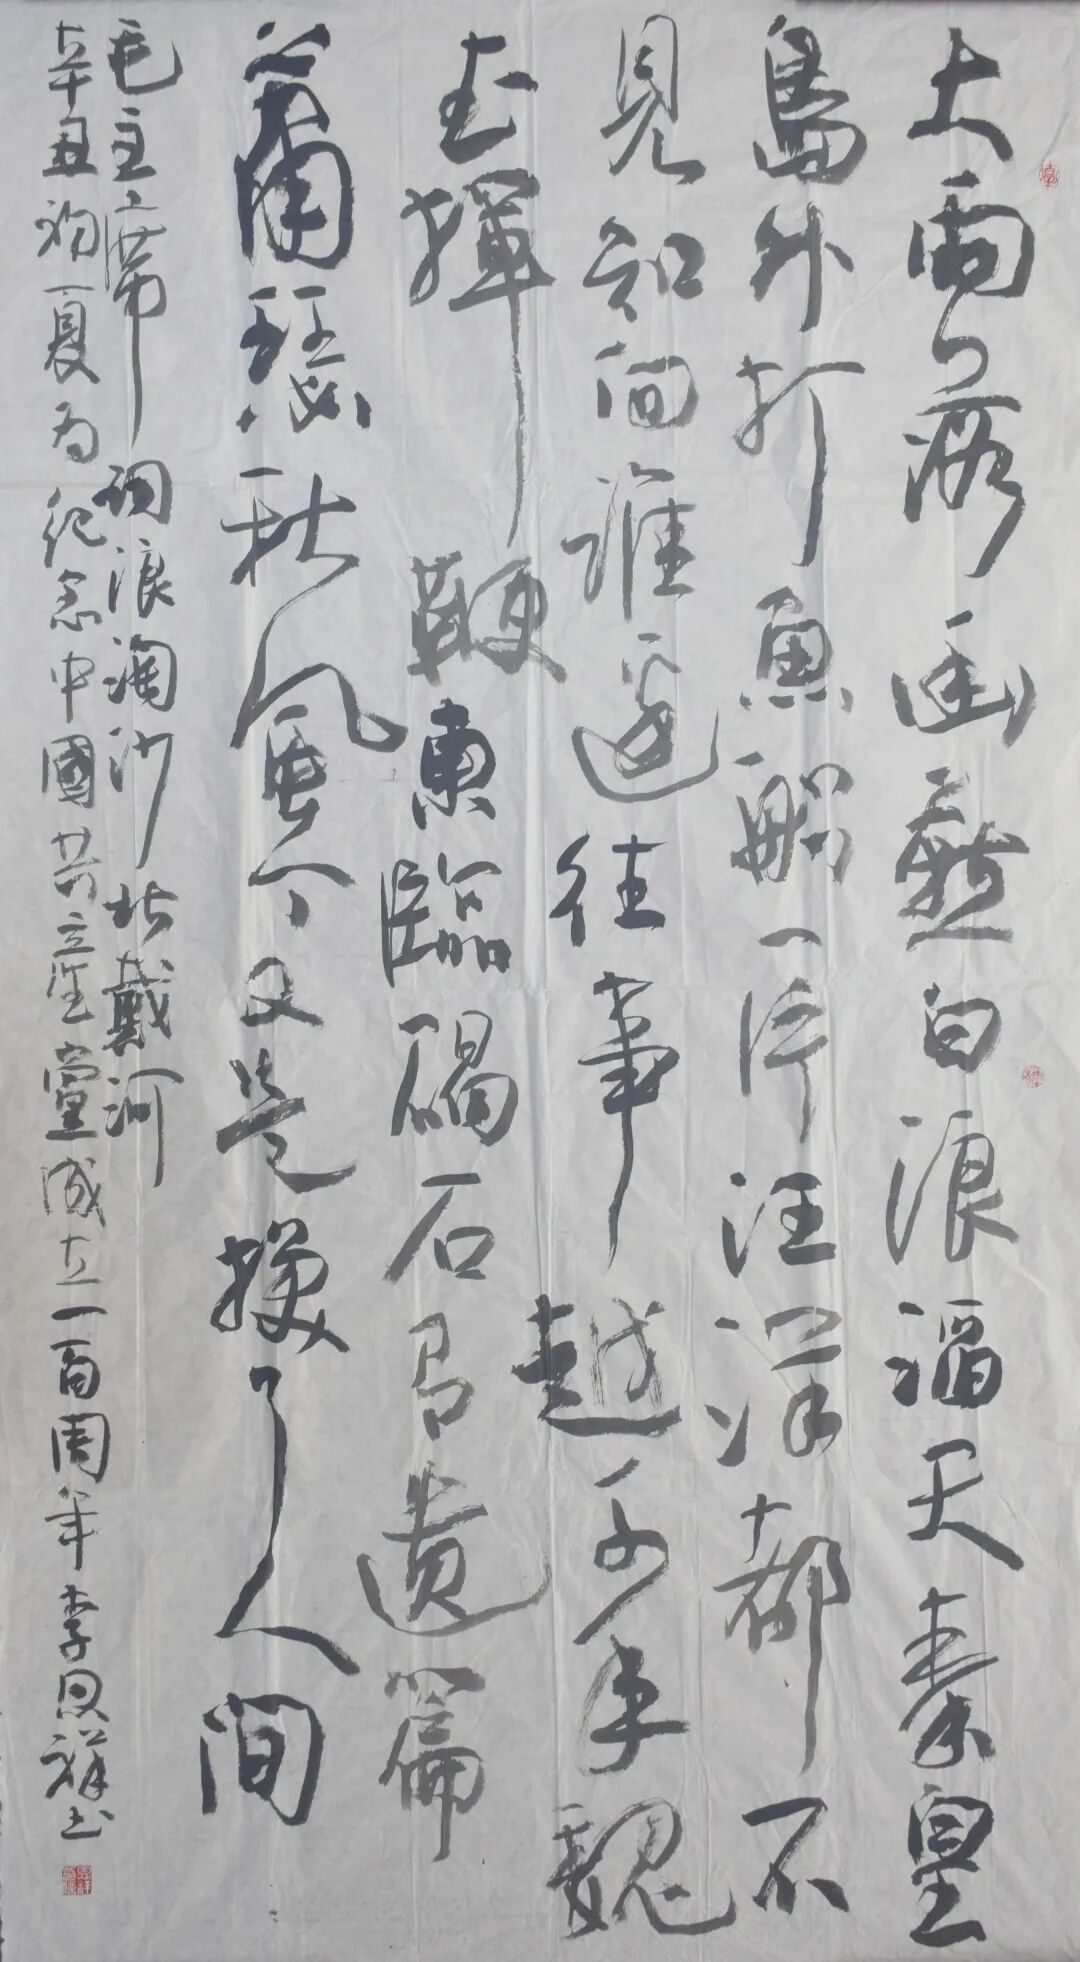 大雨落幽燕白浪滔天秦皇
島外打魚船一片汪洋都不
見知向誰邊往事越千年魏
武揮鞭東臨碣石有遺篇
蕭瑟秋風今又是換了人間
毛主席詞浪淘沙北戴河
辛丑初夏为紀念中國共產黨成立一百周年李恩祥书